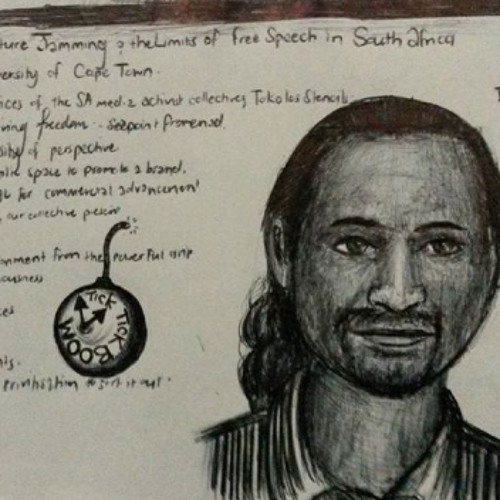 ture Jamming & the Limits of Free Speech in South Africa
versity of Cape Town.
ices of the SA media activist collectives Tokolos Stencils
ving freedom - Seapoint Promenad.
sity of perspective
blic space to promote a brand.
for commercial advancement
our collective
onment from the powerful
ousness
TICK
TICK
BOOM
ces
nts.
to sort it out.
T